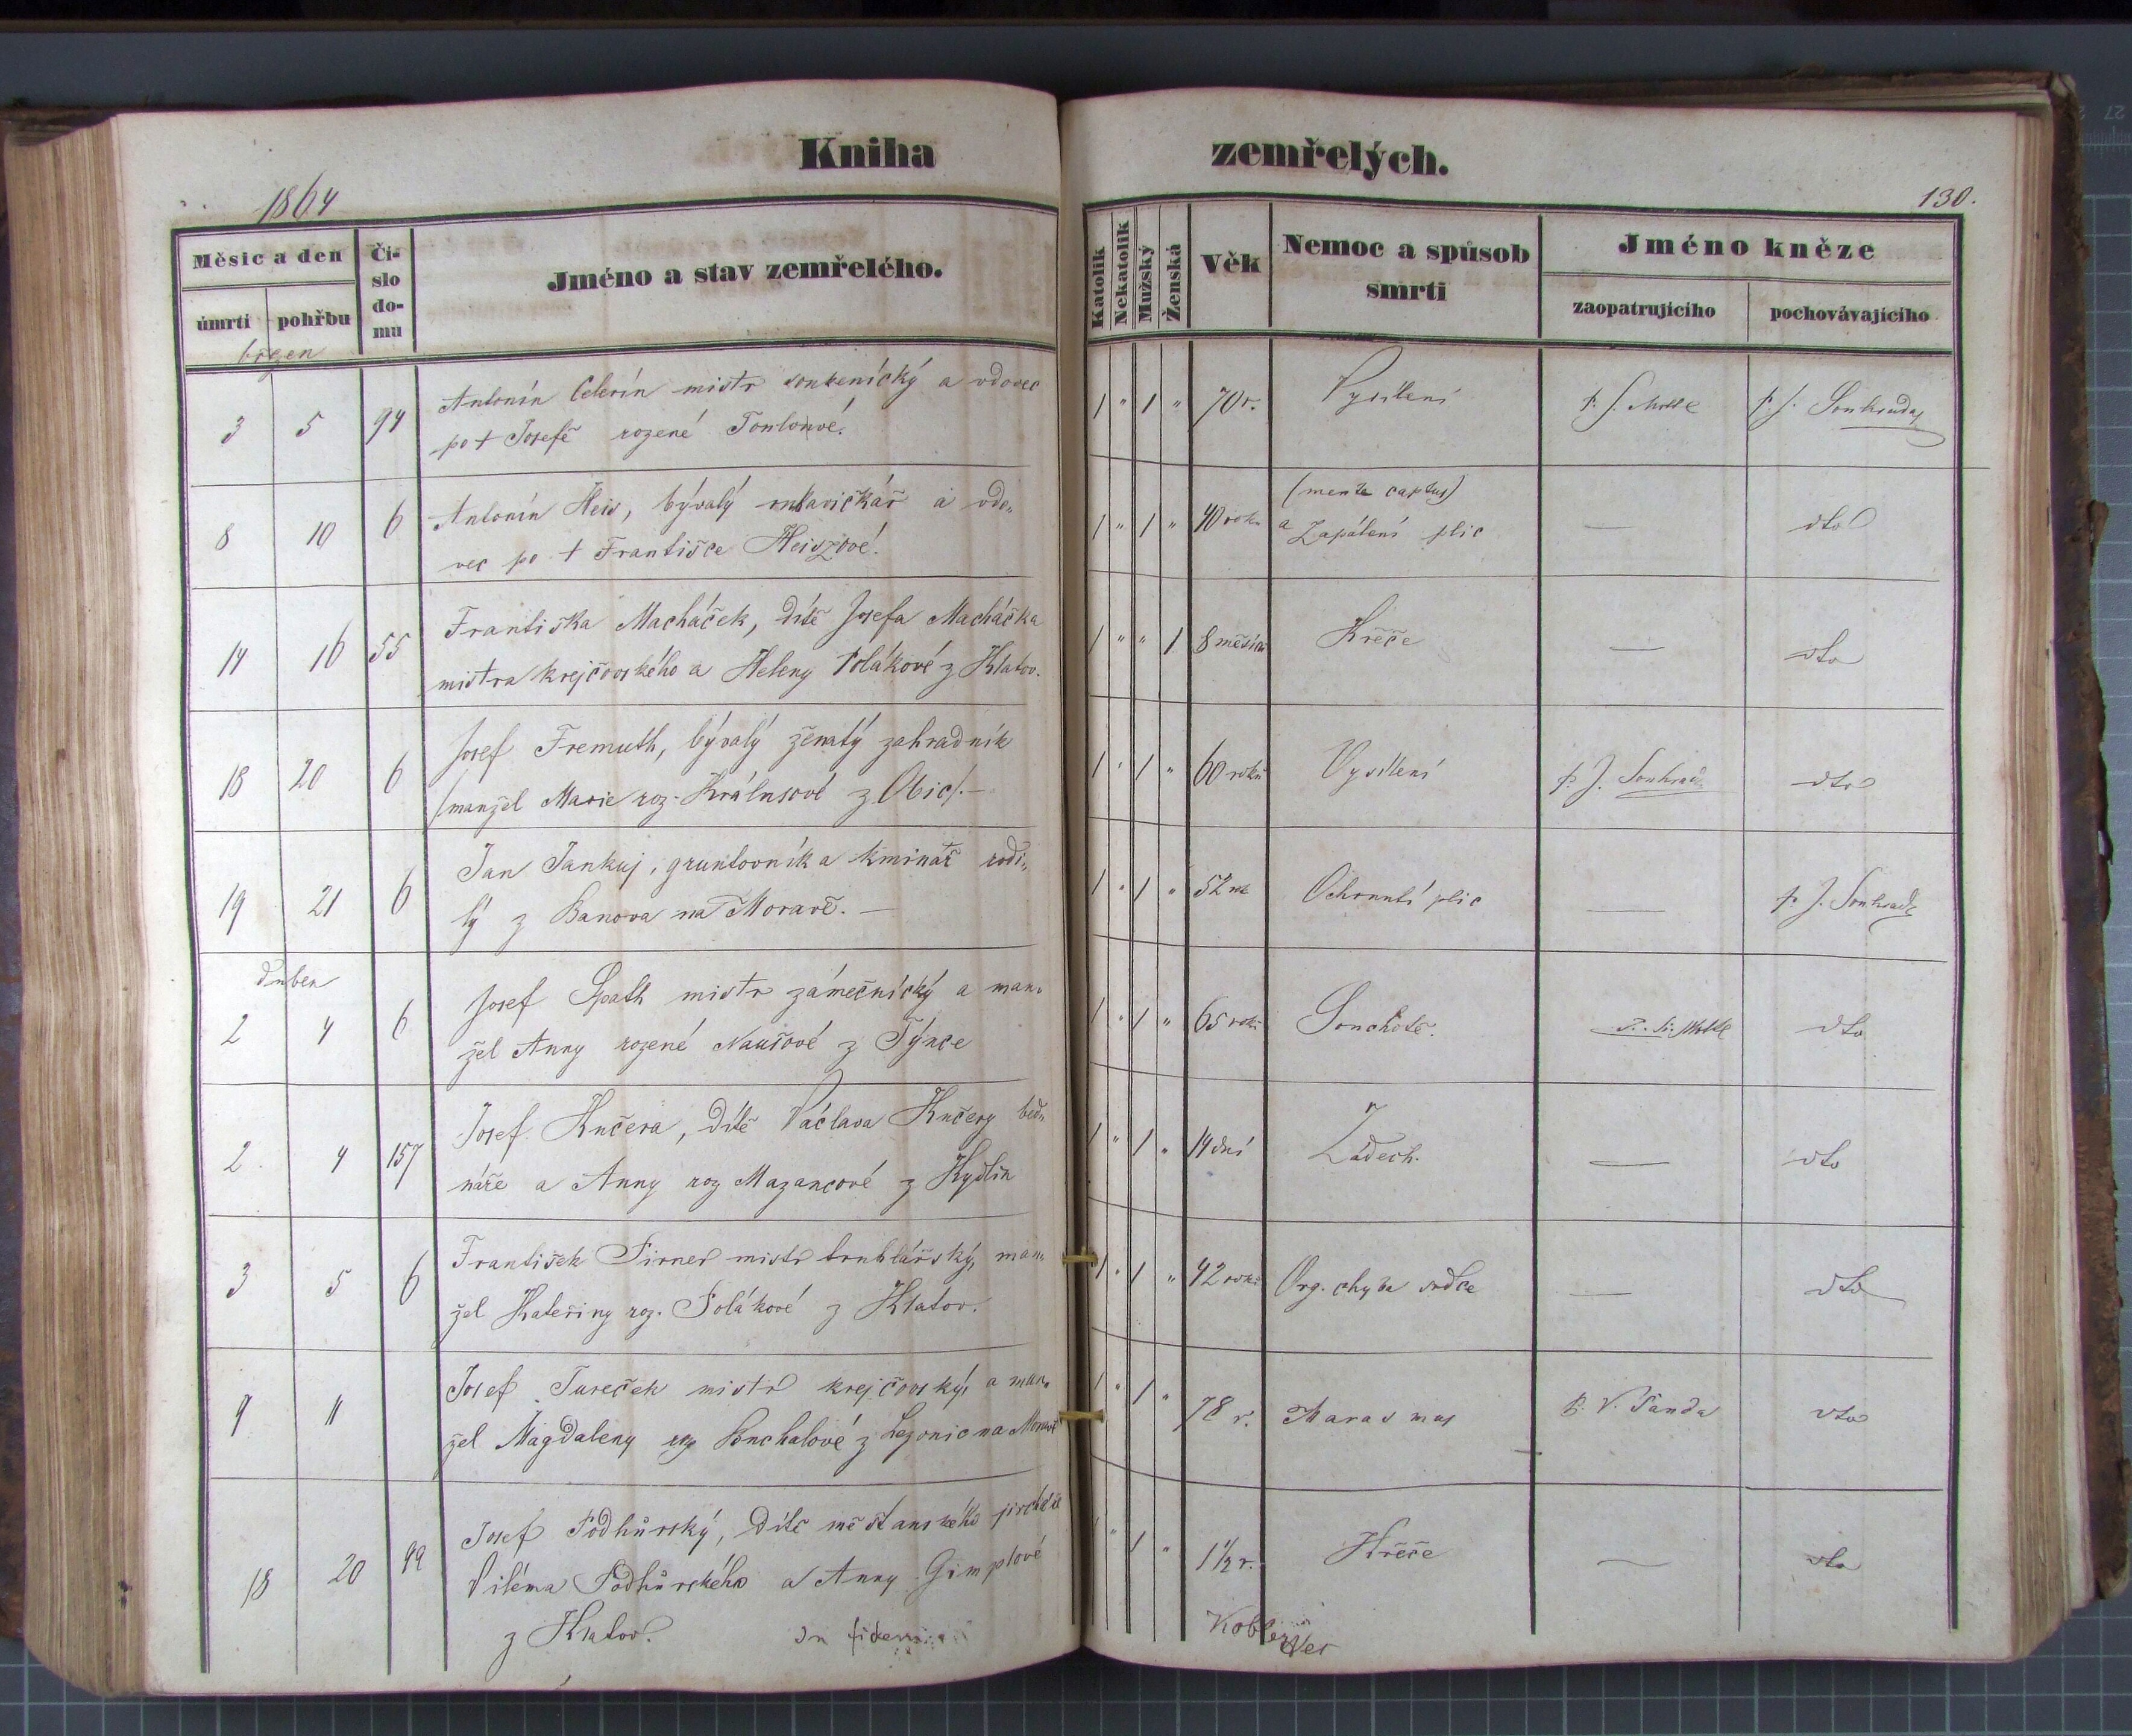 Kniha zemřelých.
1864
130.
Měsíc a den
úmrtí
pohřbu
Čí-
slo
do-
mu
Jméno a stav zemřelého.
Katolík
Nekatolík
Mužský
Ženská
Věk
Nemoc a spůsob
smrti
Jméno kněze
zaopatrujícího
pochovávajícího
březen
3 5 94 Antonín Celerín mistr soukenický a vdovec
po † Josefě rozené
1 " 1 " 70 r. Vysílení
8 10 6 Antonín Heis, bývalý a vdo„
vec po † Františce Heiszové.
1 " 1 " 40 roků (mente captus)
a Zapálení plic — dto
14 16 55 Františka Macháček, dítě Josefa Macháčka
mistra krejčovského a Heleny Polákové z Klatov.
1 " " 1 8 měsíců Křeče — dto
18 20 6 Josef Fremuth, bývalý ženatý zahradník
(manžel Marie roz. z Obic).—
1 " 1 " 60 roků Vysílení p. J. dto
19 21 6 Jan Jankuj, gruntovník a kminář rodi„
lý z Banova na Moravě. —
1 " 1 " 52 Ochrnutí plic — p. J.
duben
2 4 6 Josef Spath mistr zámečnický a man„
žel Anny rozené Naušové z Týnce
1 " 1 " 65 roků Souchotě. dto
2. 4 157 Josef Kučera, dítě Václava Kučery bed„
náře a Anny roz Mazancové z Kydlin
1 " 1 " 14 dní Zádech. — dto
3 5 6 František Pirner mistr truhlářský, man„
žel Kateřiny roz. Polákové z Klatov.
1 " 1 " 42 roků Org. chyba srdce — dto
9 11 Josef Tureček mistr krejčovský, a man„
žel Magdaleny roz Buchalové z na Moravě
1 " 1 " 78 r. Marasmus P. V. Šanda dto
18 20 99 Josef Podhůrský, dítě měšťanského jircháře
Viléma Podhůrského a Anny Gimplové
z Klatov.
1 " 1 " 1 1/2 r. Křeče — dto
In fidem